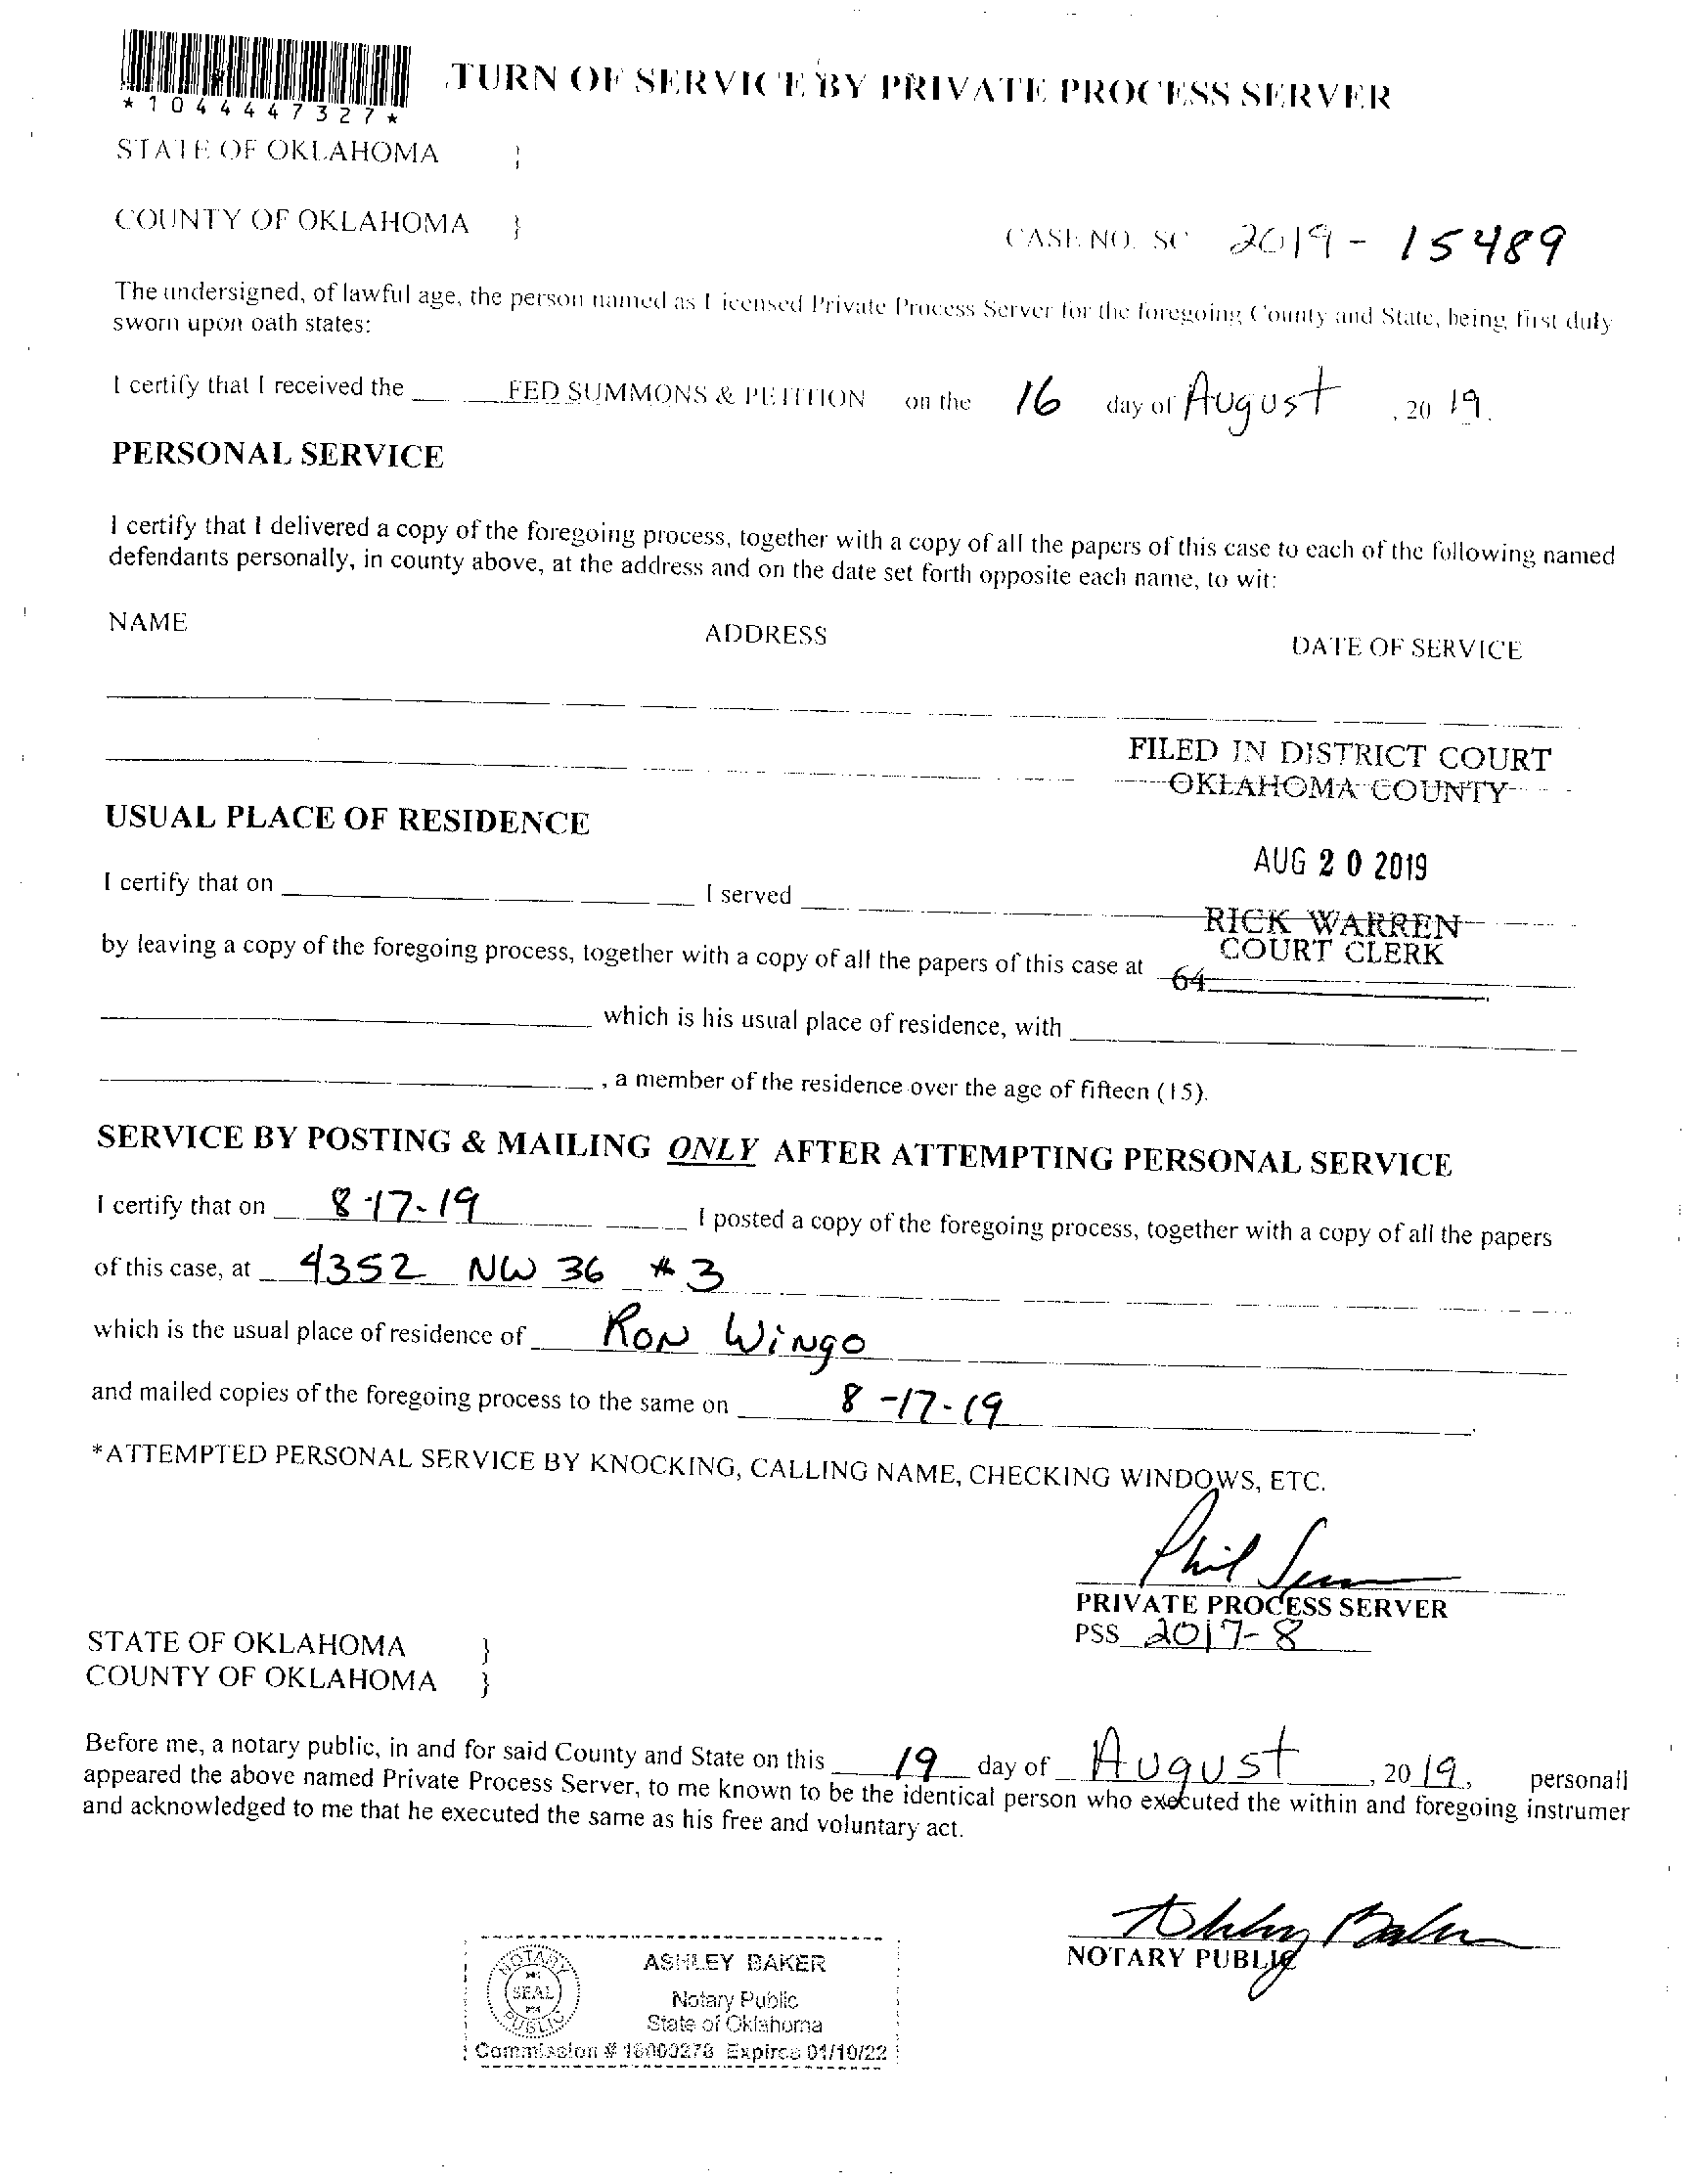 TURN OF SERVICE BY PRIVATE PROCESS SERVER
*1044447327*
STATE OF OKLAHOMA }
COUNTY OF OKLAHOMA }
CASE NO. SC 2019-15489
The undersigned, of lawful age, the person named as Licensed Private Process Server for the foregoing County and State, being first duly
sworn upon oath states:
I certify that I received the FED SUMMONS & PETITION on the 16 day of August, 20 19.
PERSONAL SERVICE
I certify that I delivered a copy of the foregoing process, together with a copy of all the papers of this case to each of the following named
defendants personally, in county above, at the address and on the date set forth opposite each name, to wit:
NAME ADDRESS DATE OF SERVICE
FILED IN DISTRICT COURT
OKLAHOMA COUNTY
USUAL PLACE OF RESIDENCE
AUG 20 2019
I certify that on ____ I served ____
RICK WARREN
COURT CLERK
by leaving a copy of the foregoing process, together with a copy of all the papers of this case at
64
____ which is his usual place of residence, with ____
____, a member of the residence over the age of fifteen (15).
SERVICE BY POSTING & MAILING ONLY AFTER ATTEMPTING PERSONAL SERVICE
I certify that on 8-17-19 I posted a copy of the foregoing process, together with a copy of all the papers
of this case, at 4352 NW 36 #3
which is the usual place of residence of Ron Wingo
and mailed copies of the foregoing process to the same on 8-17-19
*ATTEMPTED PERSONAL SERVICE BY KNOCKING, CALLING NAME, CHECKING WINDOWS, ETC.
Phil
PRIVATE PROCESS SERVER
PSS 2017-8
STATE OF OKLAHOMA }
COUNTY OF OKLAHOMA }
Before me, a notary public, in and for said County and State on this 19 day of August, 20 19, personall
appeared the above named Private Process Server, to me known to be the identical person who executed the within and foregoing instrumer
and acknowledged to me that he executed the same as his free and voluntary act.
Ashley Baker
NOTARY PUBLIC
NOTARY SEAL PUBLIC
ASHLEY BAKER
Notary Public
State of Oklahoma
Commission # 18000278 Expires 01/10/22